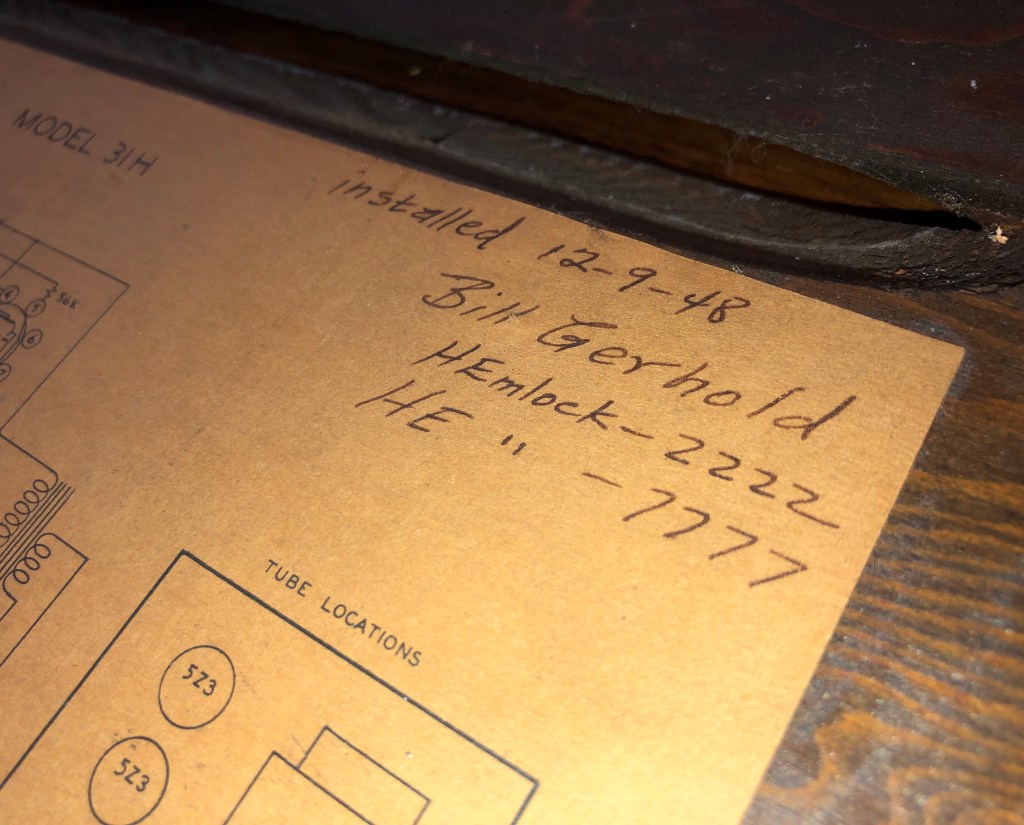 MODEL 31H
installed 12-9-48
Bill Gerhold
HEmlock-2222
HE " -7777
56K
TUBE LOCATIONS
5Z3
5Z3